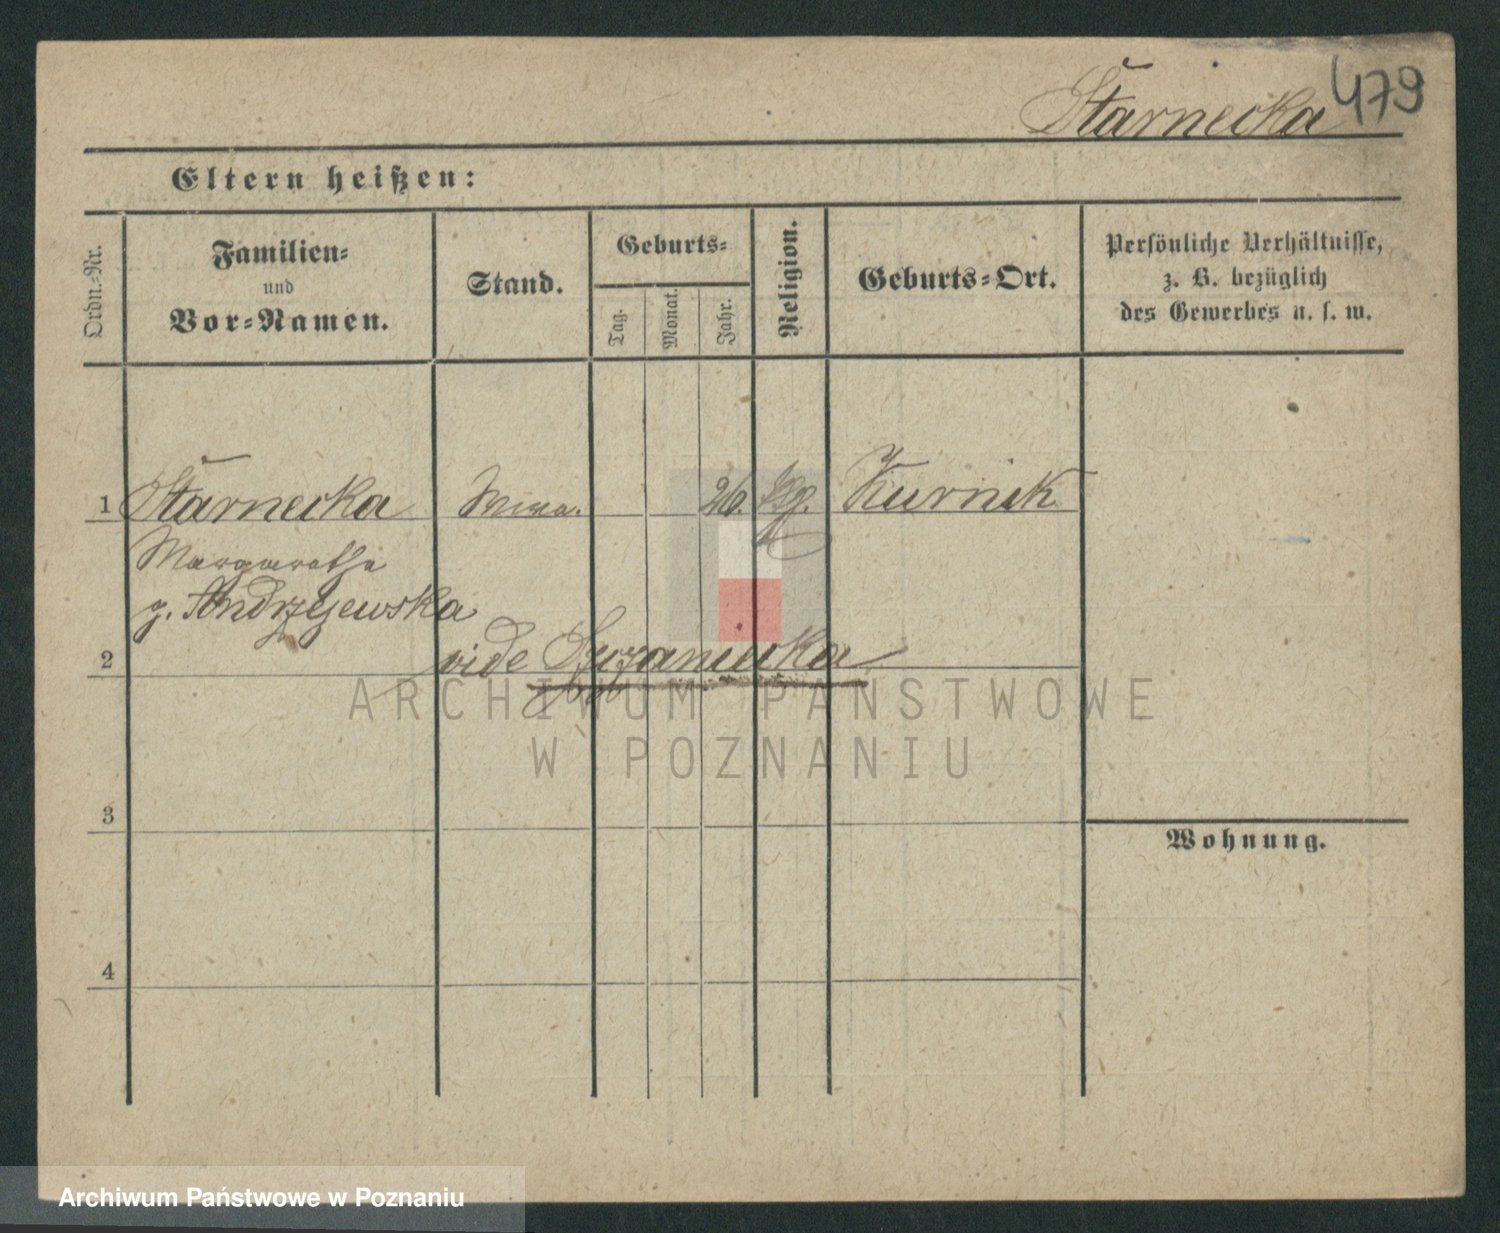 Starnecka 479
Eltern heißen:
Ordn.-Nr.
Familien-
und
Vor-Namen.
Stand.
Geburts-
Tag.
Monat.
Jahr.
Religion.
Geburts-Ort.
Persönliche Verhältnisse,
z. B. bezüglich
des Gewerbes u. s. w.
1 Starnecka 26. Kurnik
Margarethe
g. Andrzejewska
2 vide
ARCHIWUM PAŃSTWOWE
W POZNANIU
3
Wohnung.
4
Archiwum Państwowe w Poznaniu